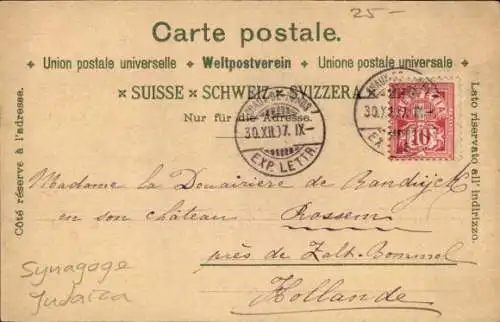 25-
Carte postale.
Union postale universelle ✦ Weltpostverein ✦ Unione postale universale
SUISSE × SCHWEIZ × SVIZZERA
Nur für die Adresse.
Côté réservé à l'adresse.
Lato riservato all' indirizzo.
30.XII.97.IX-
EXP. LETTR.
30.XII.97.IX-
EXP. LETTR.
10
Madame la Douairière de Randwijck
en son château Rossem
près de Zalt-Bommel
Hollande
Synagoge
Judaica